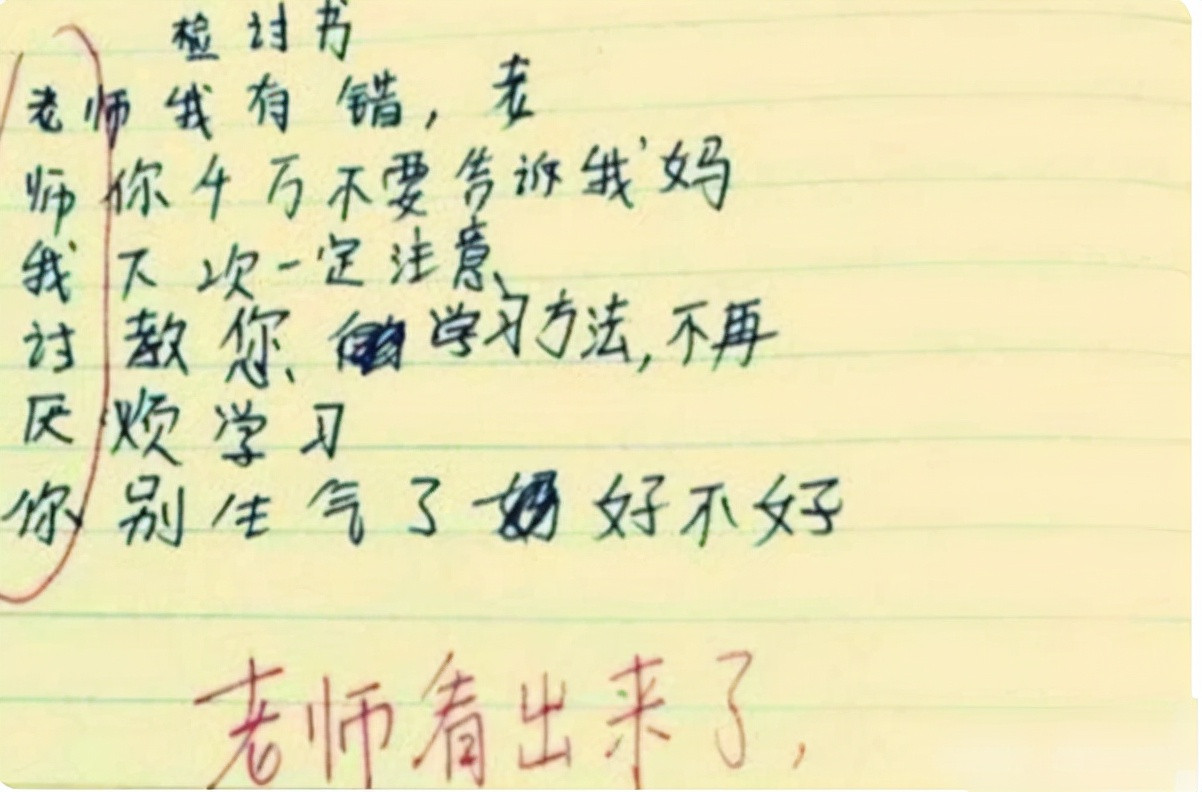 检讨书
老师我有错，老
师你千万不要告诉我妈
我下次一定注意、
讨教您、学习方法,不再
厌烦学习
你别生气了 好不好
老师看出来了,